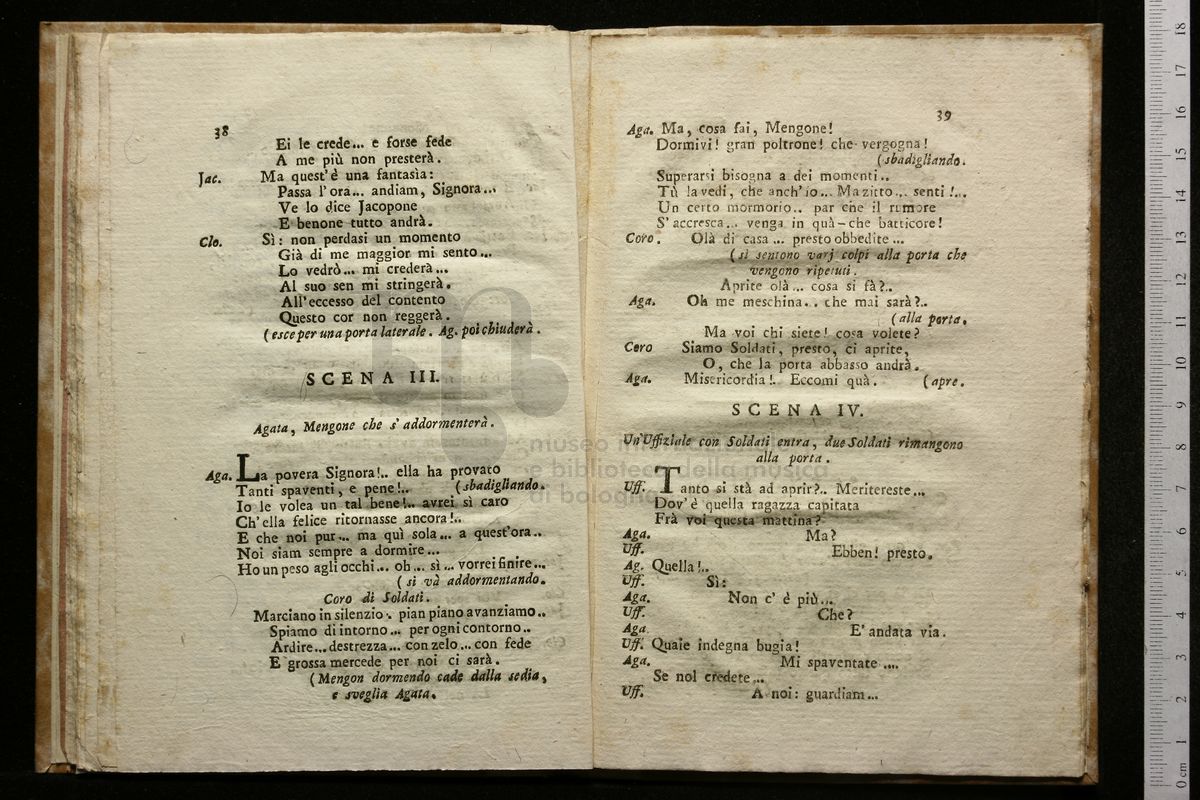 38
Ei le crede... e forse fede
A me più non presterà.
Jac. Ma quest'è una fantasìa:
Passa l'ora... andiam, Signora...
Ve lo dice Jacopone
E benone tutto andrà.
Clo. Sì: non perdasi un momento
Già di me maggior mi sento...
Lo vedrò... mi crederà...
Al suo sen mi stringerà.
All'eccesso del contento
Questo cor non reggerà.
(esce per una porta laterale. Ag. poi chiuderà.
SCENA III.
Agata, Mengone che s'addormenterà.
Aga. La povera Signora!.. ella ha provato
Tanti spaventi, e pene!.. (sbadigliando.
Io le volea un tal bene!.. avrei sì caro
Ch'ella felice ritornasse ancora!..
E che noi pur... ma quì sola... a quest'ora..
Noi siam sempre a dormire...
Ho un peso agli occhi... oh... sì... vorrei finire...
(si và addormentando.
Coro di Soldati.
Marciano in silenzio.. pian piano avanziamo..
Spiamo di intorno... per ogni contorno..
Ardire... destrezza... con zelo... con fede
E grossa mercede per noi ci sarà.
(Mengon dormendo cade dalla sedia,
e sveglia Agata.
39
Aga. Ma, cosa fai, Mengone!
Dormivi! gran poltrone! che vergogna!
(sbadigliando.
Superarsi bisogna a dei momenti..
Tù la vedi, che anch'io... Ma zitto... senti!...
Un certo mormorio.. par che il rumore
S'accresca... venga in quà-che batticore!
Coro. Olà di casa... presto obbedite...
(si sentono varj colpi alla porta che
vengono ripetuti.
Aprite olà... cosa si fà?..
Aga. Oh me meschina.. che mai sarà?..
(alla porta.
Ma voi chi siete! cosa volete?
Coro Siamo Soldati, presto, ci aprite,
O, che la porta abbasso andrà.
Aga. Misericordia!.. Eccomi quà. (apre.
SCENA IV.
Un'Uffiziale con Soldati entra, due Soldati rimangono
alla porta.
Uff. Tanto si stà ad aprir?.. Meritereste...
Dov'è quella ragazza capitata
Frà voi questa mattina?
Aga. Ma?
Uff. Ebben! presto.
Ag. Quella!..
Uff. Sì:
Aga. Non c'è più...
Uff. Che?
Aga. E' andata via.
Uff. Quale indegna bugia!
Aga. Mi spaventate....
Se nol credete...
Uff. A noi: guardiam...
museo internazionale
e biblioteca della musica
di bologna
0 cm 1 2 3 4 5 6 7 8 9 10 11 12 13 14 15 16 17 18